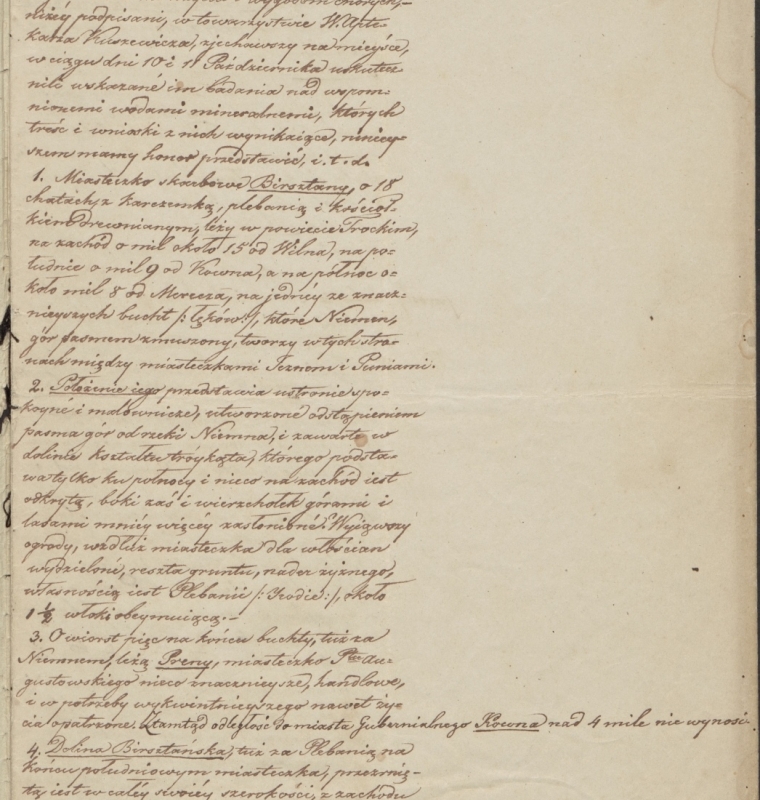 niżéy podpisani, w towarzystwie W. Apte-
karza Kuszewicza, zjechawszy na mieysce,
w ciągu dni 10 i 11 Października uskutecz-
nili wskazane im badania nad wspom-
nionemi wodami mineralnemi, których
treść i wnioski z nich wynikaiące, ninіey-
szem mamy honor przedstawić, i. t. d.
1. Miasteczko skarbowe Birsztany, o 18
chatach, z karczemką, plebanią i kościoł-
kiem drewnianym, leży w powiecie Trockim,
na zachód o mil około 15 od Wilna, na po-
łudnie o mil 9 od Kowna, a na północ o-
koło mil 8 od Merecza, na jednéy ze znacz-
nieyszych bucht /: łęków :/, które Niemen,
gór pasmem zmuszony, tworzy w tych stro-
nach między miasteczkami Jeznem i Puniami.
2. Położenie iego przedstawia ustronie spo-
koyné i malownicze, utworzone odstąpieniem
pasma gór od rzeki Niemna, i zawarte w
dolinie kształtu tróykąta, którego podsta-
wa tylko ku północy i nieco na zachód iest
odkrytą, boki zaś i wierzchołek górami i
lasami mniéy więcéy zasłonione. Wyiąwszy
ogrody, wzdłuż miasteczka dla włościan
wydzieloné, reszta gruntu, nader żyznego,
własnością iest Plebanii /: :/, około
1 1/2 włoki obeymuiącą.-
3. O wiorst pięć na końcu buchty, tuż za
Niemnem, leżą Preny, miasteczko Pttu Au-
gustowskiego nieco znacznieysze, handlowe,
i w potrzeby wykwintnieyszego nawet ży-
cia opatrzone. Ztamtąd odległość do miasta Gubernialnego Kowna nad 4 mile nie wynosi.
4. Dolina Birsztańska, tuż za Plebanią na
końcu południowym miasteczka, przerznię-
tą iest w całéy swoiéy szerokości, z zachodu